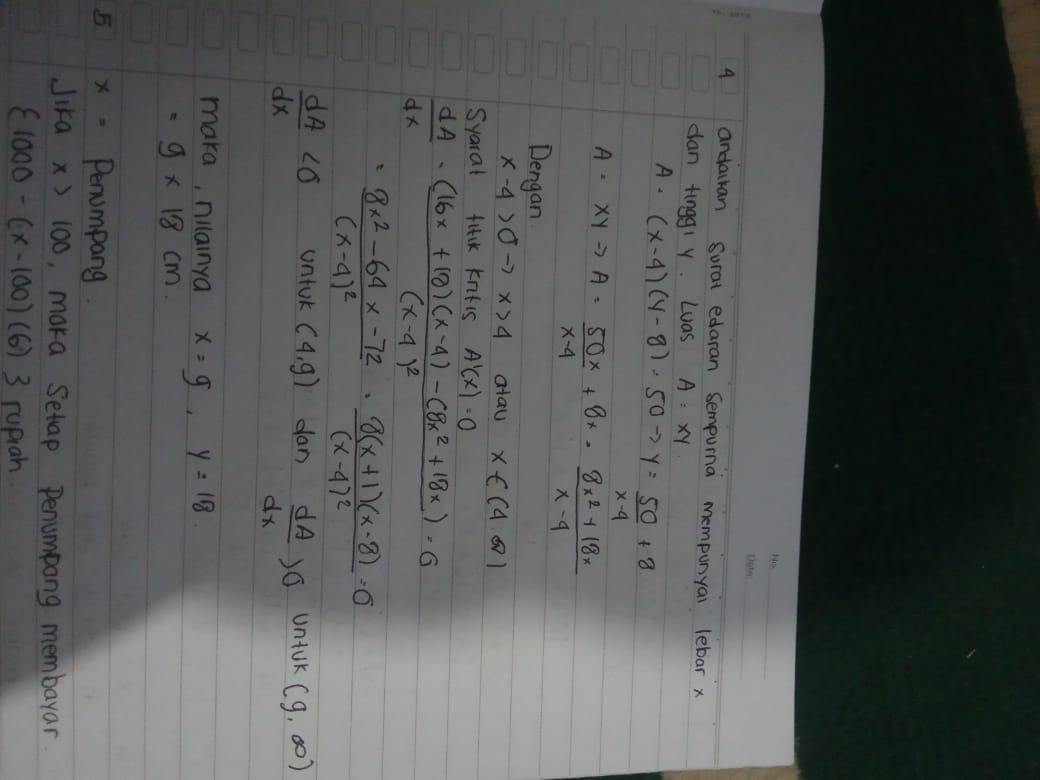 No.
Date:
4 andaikan Surat edaran Sempurna mempunyai lebar x
dan tinggi y. Luas A = xy.
A = (x-4)(y-8) = 50 → y = 50/(x-4) + 8
A = xy → A = 50x/(x-4) + 8x = (8x² + 18x)/(x-4)
Dengan
x-4 > 0 → x > 4 atau x ∈ (4, ∞)
Syarat titik kritis A'(x) = 0
dA/dx = ((16x + 18)(x-4) - (8x² + 18x))/(x-4)² = 0
= (8x² - 64x - 72)/(x-4)² = 8(x+1)(x-8)/(x-4)² = 0
dA/dx < 0 untuk (4,9) dan dA/dx > 0 untuk (9, ∞)
maka, nilainya x = 9, y = 18.
= 9 x 18 cm.
5 x = Penumpang.
Jika x > 100, maka Setap Penumpang membayar
{1000 - (x-100)(6)} rupiah